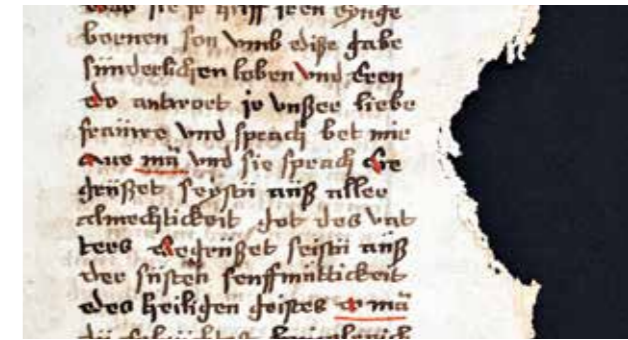 sie je
bornen son vmb diße gabe
sunderlichen loben vnd eren
do antwort je vnßer liebe
frauwe vnd sprach bet mir
Aue mā vnd sie sprach Ge
grußet seystu auß aller
almechtickeit got des vat
ters Gegrußet seistu auß
der susten senfftmuttickeit
des heiligen geistes o mā
du